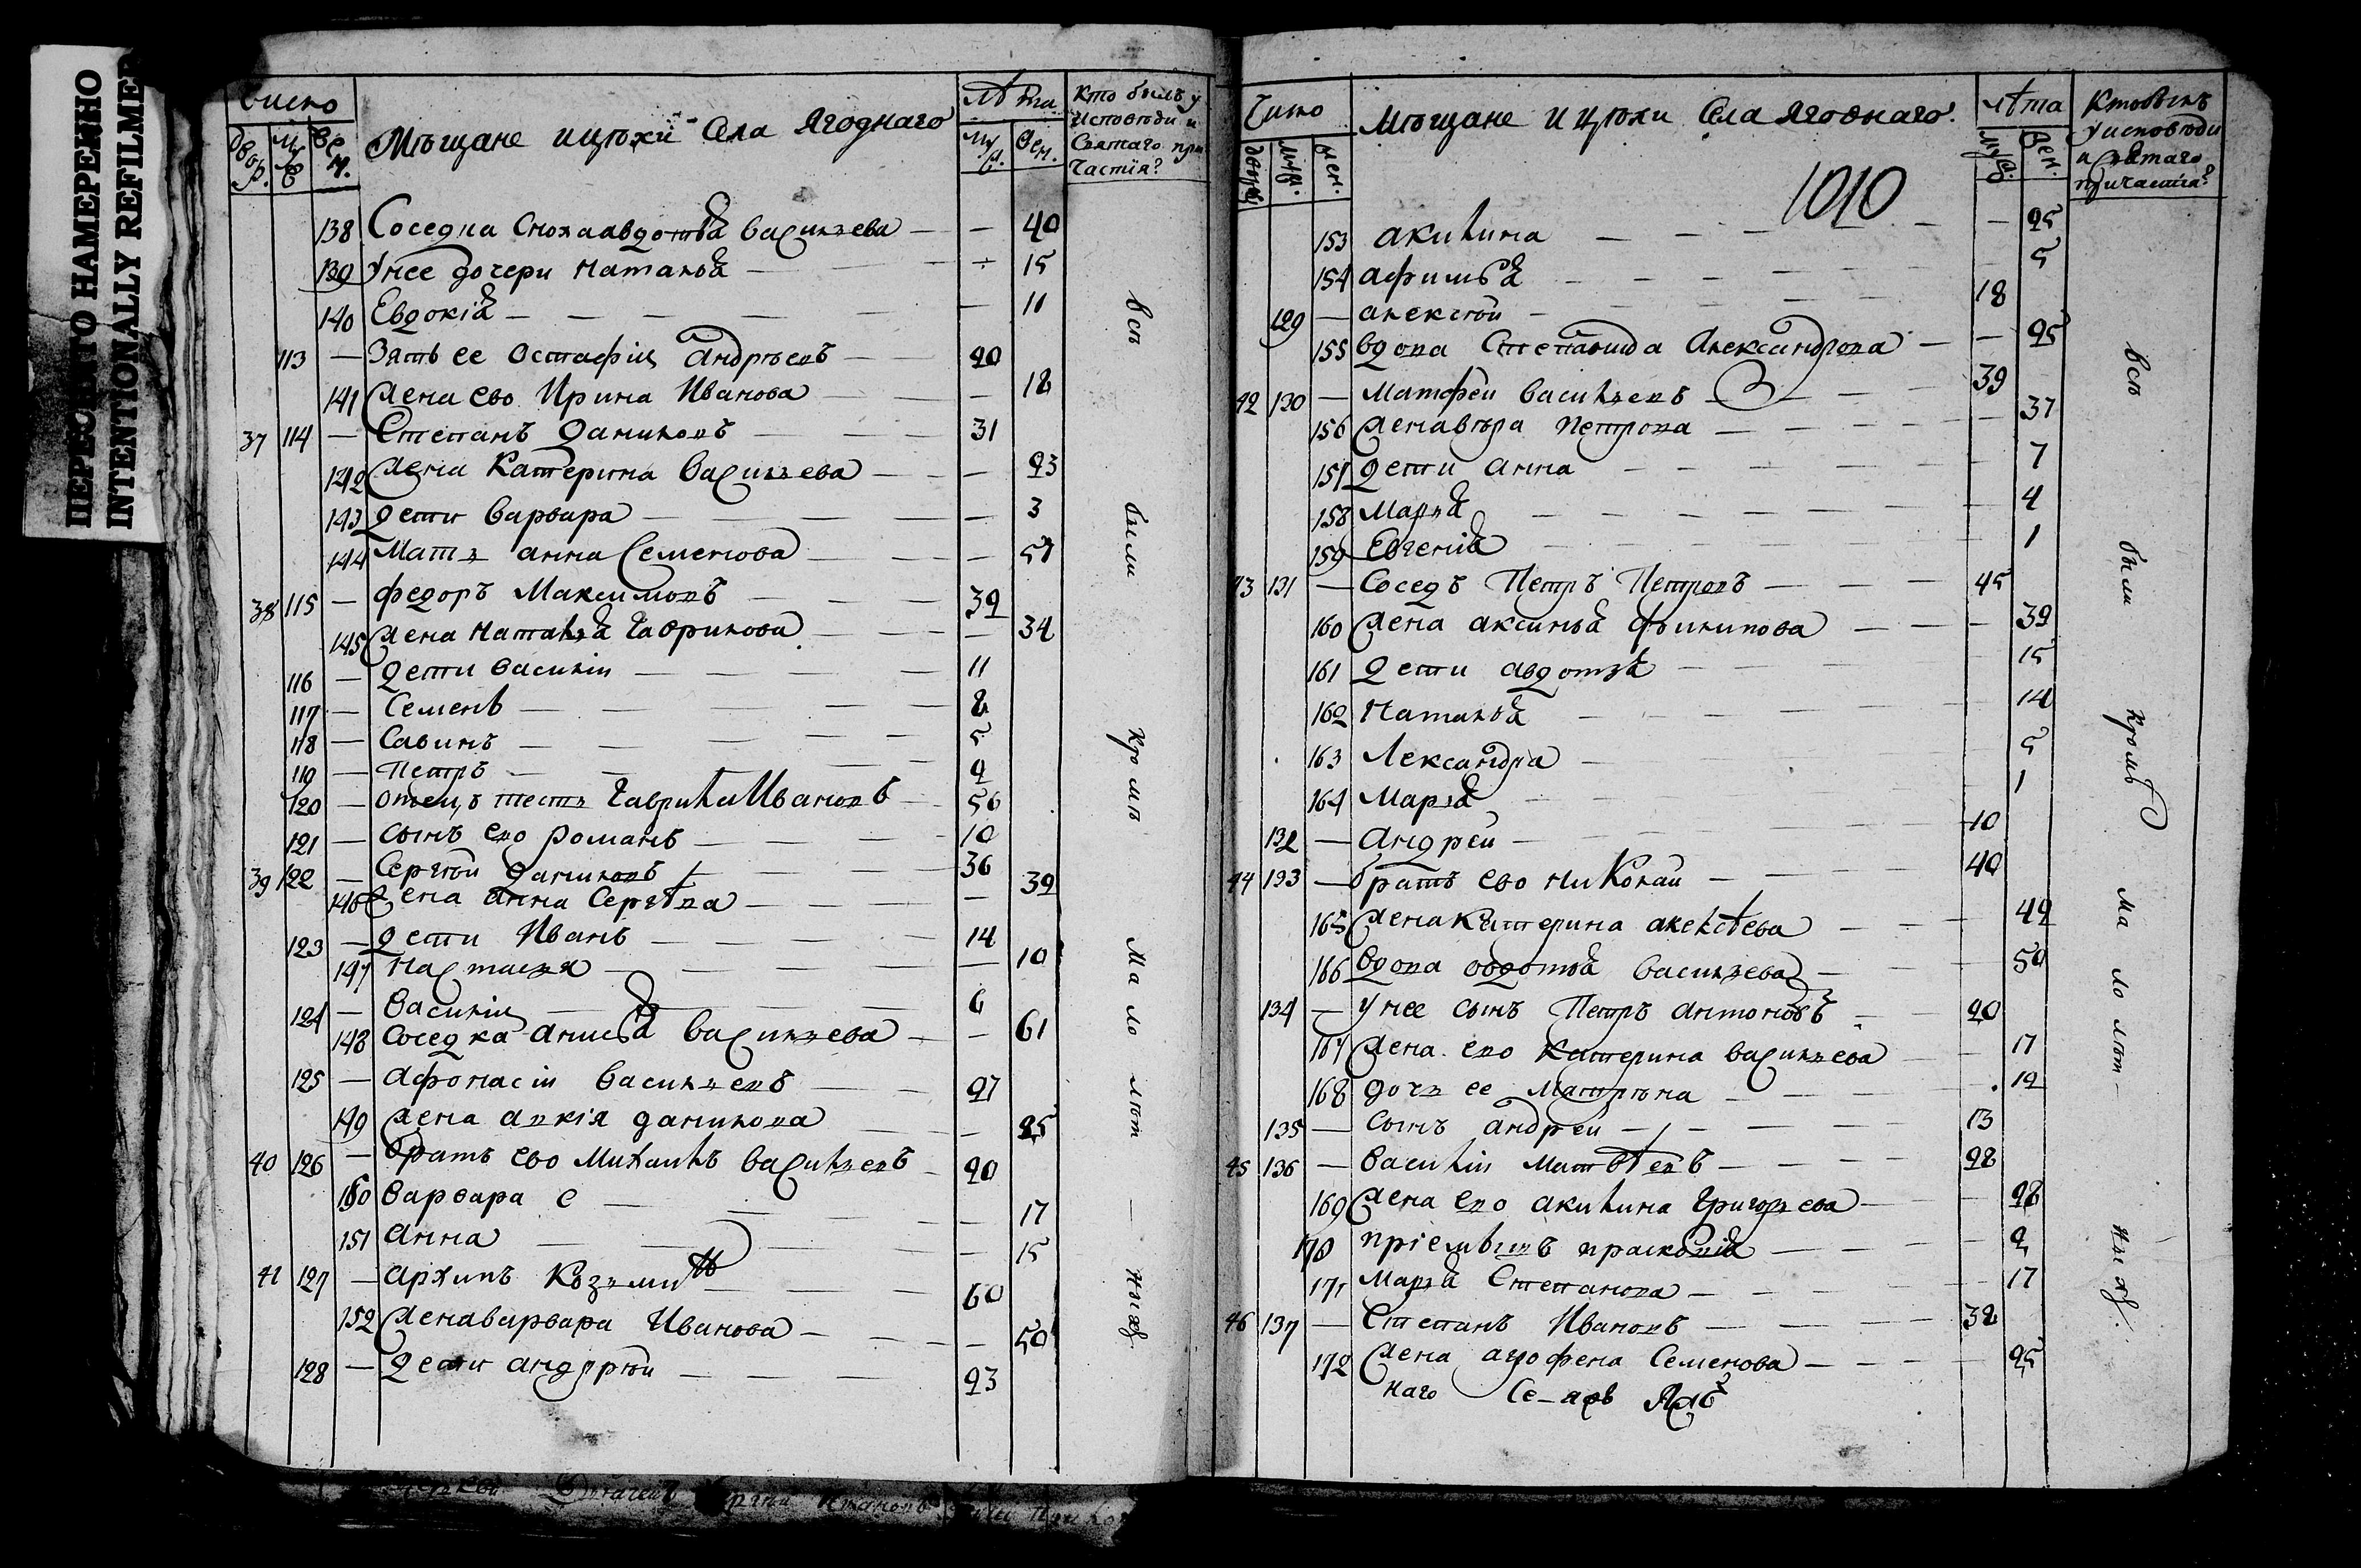 ПЕРЕСНЯТО НАМЕРЕННО
INTENTIONALLY REFILMED
число
двор. муж. жен.
Мѣщане и цѣхи Села Ягоднаго
лѣта
муж. жен.
Кто былъ у
исповѣди и
Святаго при
частія?
138 Соседка сноха авдотья васильева — 40
139 У нее дочери Наталья — 15
140 Евдокія — 11
113 — Зять ее Остафiи андрѣевъ — 20
141 Жена ево Ирина Иванова — 18
37 114 — Степанъ Даниловъ — 31
142 Жена Катерина васильева — 23
143 дети варвара — 3
144 Мать анна Семенова — 57
38 115 — федоръ Максимовъ — 39
145 Жена Наталья Гаврилова — 34
116 — дети василiи — 11
117 — Семенъ — 8
118 — Савинъ — 5
119 — Петръ — 2
120 — отецъ тесть Гаврила Ивановъ — 56
121 — сынъ ево романъ — 10
39 122 — Сергѣй Даниловъ — 36
146 Жена анна Сергѣева — 39
123 — дети Иванъ — 14
147 Настасья — 10
124 — василiи — 6
148 соседка анисья васильева — 61
125 — афонасiи васильевъ — 27
149 жена данилова — 25
40 126 — братъ ево Михаилъ васильевъ — 20
150 варвара — 17
151 анна — 15
41 127 — архипъ Козьминъ — 60
152 Жена варвара Иванова — 50
128 — дети андрѣи — 23
всѣ были кромѣ малолѣт — ныхъ
число
двор. муж. жен.
Мѣщане и цѣхи Села Ягоднаго.
1010
лѣта
муж. жен.
Кто былъ
у исповѣди
и святаго
причастия?
153 акилина — 25
154 афимья — 5
129 — алексѣй — 18
155 вдова Степанида Александрова — 25
42 130 — Матфеи васильевъ — 39
156 Жена вѣра Петрова — 37
157 дети анна — 7
158 Марья — 4
159 Евгенiя — 1
43 131 — Соседъ Петръ Петровъ — 45
160 Жена аксинья филипова — 39
161 дети авдотья — 15
162 Наталья — 14
163 Лександра — 5
164 Марья — 1
132 — андреи — 10
44 133 — братъ ево Николаи — 40
165 Жена Катерина алексѣева — 42
166 вдова овдотья васильева — 50
134 — у нее сынъ Петръ антоновъ — 20
167 Жена ево Катерина васильева — 17
168 дочь ее Матрѣна — 12
135 — сынъ андреи — 13
45 136 — василiи Матвѣевъ — 28
169 Жена ево акилина Григорьева — 28
170 прасковiя — 2
171 Марья Степанова — 17
46 137 — Степанъ Ивановъ — 32
172 Жена агрофена Семенова — 25
наго
всѣ были кромѣ малолѣт — ныхъ.